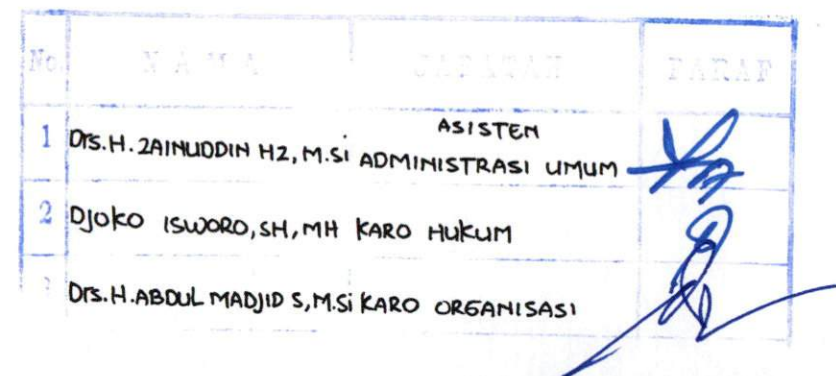 No. NAMA JABATAN PARAF
1 Drs.H. ZAINUDDIN HZ, M.Si ASISTEN ADMINISTRASI UMUM
2 DJOKO ISWORO, SH, MH KARO HUKUM
3 Drs.H. ABDUL MADJID S, M.Si KARO ORGANISASI